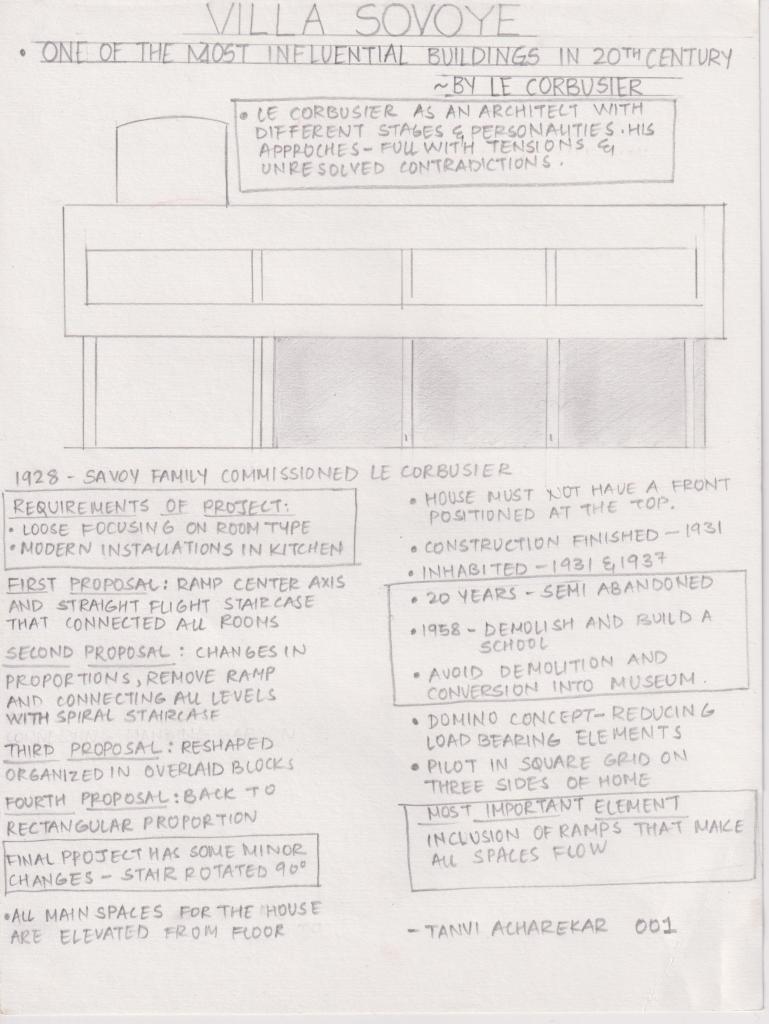 VILLA SOVOYE
• ONE OF THE MOST INFLUENTIAL BUILDINGS IN 20TH CENTURY
~BY LE CORBUSIER
• LE CORBUSIER AS AN ARCHITECT WITH
DIFFERENT STAGES & PERSONALITIES. HIS
APPROCHES - FULL WITH TENSIONS &
UNRESOLVED CONTRADICTIONS.
1928 - SAVOY FAMILY COMMISSIONED LE CORBUSIER
REQUIREMENTS OF PROJECT:
• LOOSE FOCUSING ON ROOM TYPE
• MODERN INSTALLATIONS IN KITCHEN
FIRST PROPOSAL: RAMP CENTER AXIS
AND STRAIGHT FLIGHT STAIRCASE
THAT CONNECTED ALL ROOMS
SECOND PROPOSAL: CHANGES IN
PROPORTIONS, REMOVE RAMP
AND CONNECTING ALL LEVELS
WITH SPIRAL STAIRCASE
THIRD PROPOSAL: RESHAPED
ORGANIZED IN OVERLAID BLOCKS
FOURTH PROPOSAL: BACK TO
RECTANGULAR PROPORTION
FINAL PROJECT HAS SOME MINOR
CHANGES - STAIR ROTATED 90°
• ALL MAIN SPACES FOR THE HOUSE
ARE ELEVATED FROM FLOOR
• HOUSE MUST NOT HAVE A FRONT
POSITIONED AT THE TOP.
• CONSTRUCTION FINISHED - 1931
• INHABITED - 1931 & 1937
• 20 YEARS - SEMI ABANDONED
• 1958 - DEMOLISH AND BUILD A
SCHOOL
• AVOID DEMOLITION AND
CONVERSION INTO MUSEUM.
• DOMINO CONCEPT - REDUCING
LOAD BEARING ELEMENTS
• PILOT IN SQUARE GRID ON
THREE SIDES OF HOME
MOST IMPORTANT ELEMENT
INCLUSION OF RAMPS THAT MAKE
ALL SPACES FLOW
- TANVI ACHAREKAR 001